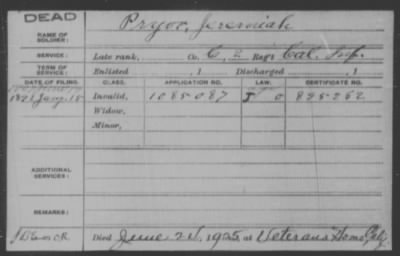 DEAD
NAME OF SOLDIER: Pryor, Jeremiah
SERVICE: Late rank, Co. C, 2 Reg't Cal. Inf.
TERM OF SERVICE: Enlisted , 1 Discharged , 1
DATE OF FILING. CLASS. APPLICATION NO. LAW. CERTIFICATE NO.
1892 Jany. 15 Invalid, 1085087 0 828252
Widow,
Minor,
ADDITIONAL SERVICES:
REMARKS:
Died June 21, 1925, at Veterans Home Calif